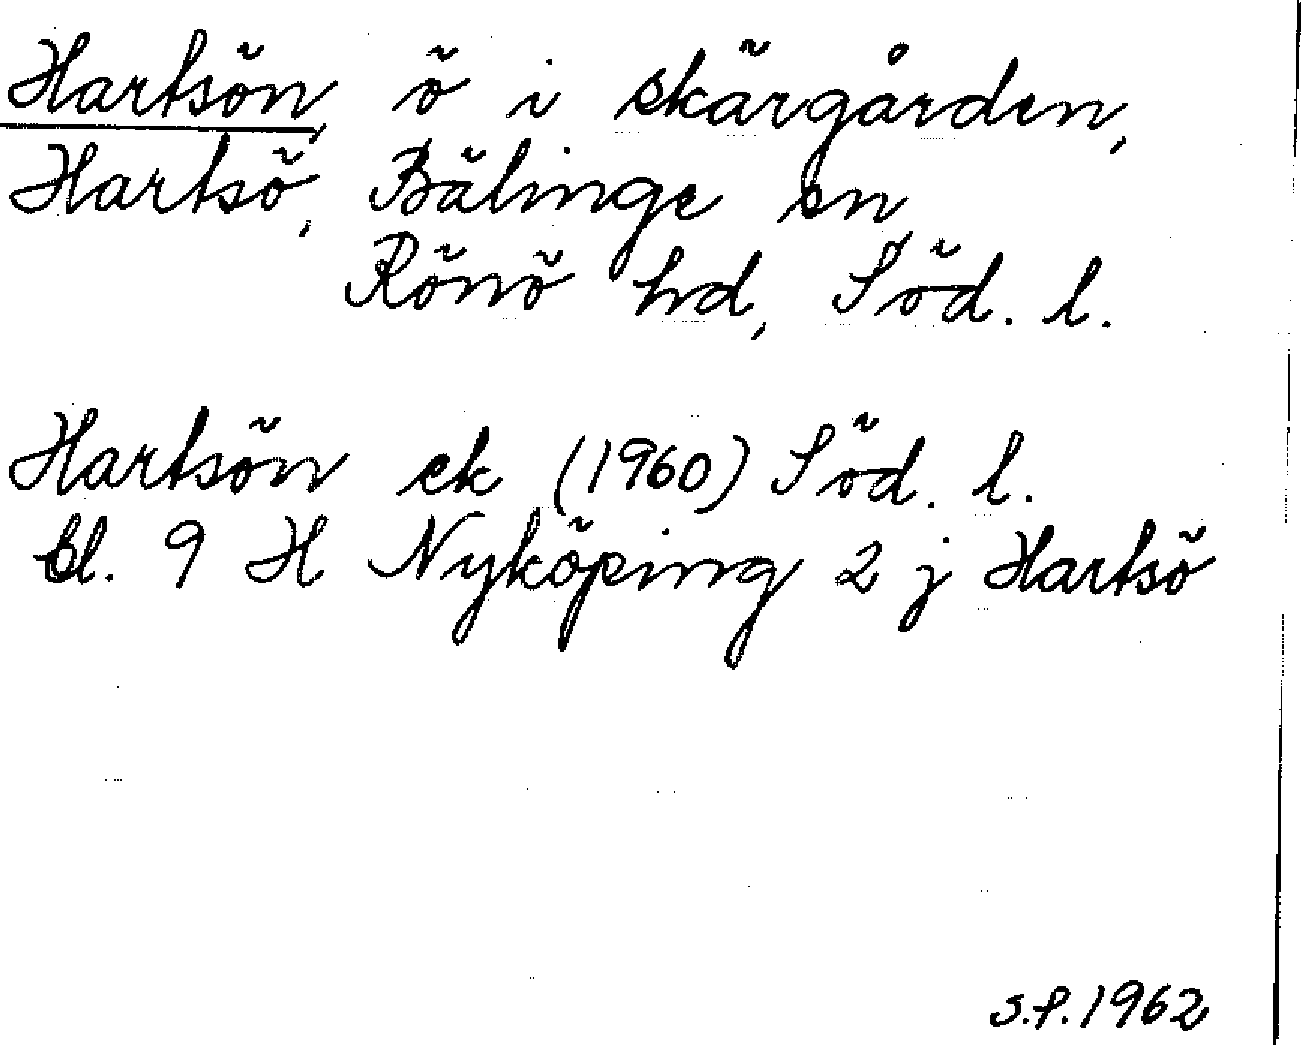 Hartsön, ö i skärgården,
Hartsö, Bälinge sn
Rönö hd, Söd. l.
Hartsön ek (1960) Söd. l.
bl. 9 H Nyköping 2 j Hartsö
S.P. 1962